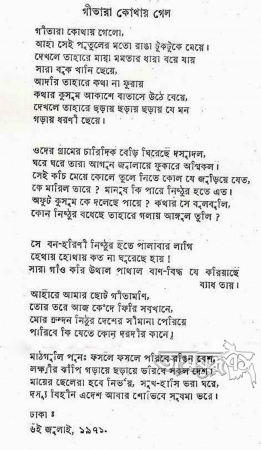 গীতারা কোথায় গেল
গীতারা কোথায় গেলো,
আহা সেই পুতুলের মতো রাঙা টুকটুকে মেয়ে।
দেখলে তাহারে মায়া মমতার ধারা বয়ে যায়
সারা বুক খানি ছেয়ে,
আদরি তাহারে কথা না ফুরায়
কথার কুসুম আকাশে বাতাসে উঠে বেয়ে,
দেখলে তাহারে ছড়ায় ছড়ায় ছড়ায় যে মন
গড়ায় ধরণী ছেয়ে।
ওদের গ্রামের চারিদিক বেড়ি ঘিরেছে দস্যুদল,
ঘরে ঘরে তারা আগুন জ্বালায়ে ফুকারে অগ্নিকল।
সেই কচি মেয়ে কোলে তুলে নিতে কোল যে জুড়িয়ে যেত,
কে মারিল তারে ? মানুষ কি পারে নিষ্ঠুর হতে এত।
অফুট কুসুম কে দলেছে পায়ে ? কথার সে বুলবুলি,
কোন নিষ্ঠুর বধেছে তাহারে গলায় আঙ্গুল তুলি ?
সে বন-হরিণী নিষ্ঠুর হতে পালাবার লাগি
হেথায় হোথায় কত না ঘুরেছে হায় !
সারা গাঁও করি উথাল পাথাল বাণ-বিদ্ধ যে করিয়াছে
ব্যাধ তায়।
আহারে আমার ছোট গীতামণি,
তোর তরে আজ কেঁদে ফিরি সবখানে,
মোর ক্রন্দন নিঠুর দেশের সীমানা পেরিয়ে
পারিবে কি যেতে কোন্ দরদীর কানে।
মাঠগুলি পুনঃ ফসলে ফসলে পরিবে রঙিন বেশ,
লক্ষ্মীর ঝাঁপি গড়ায়ে ছড়ায়ে ভরিবে সকল দেশ।
মায়ের ছেলেরা হবে নির্ভয়, সুখ-হাসি ভরা ঘরে,
দস্যু বিহীন এদেশ আবার শোভিবে সুষমা ভরে।
ঢাকা :
৬ই জুলাই, ১৯৭১।